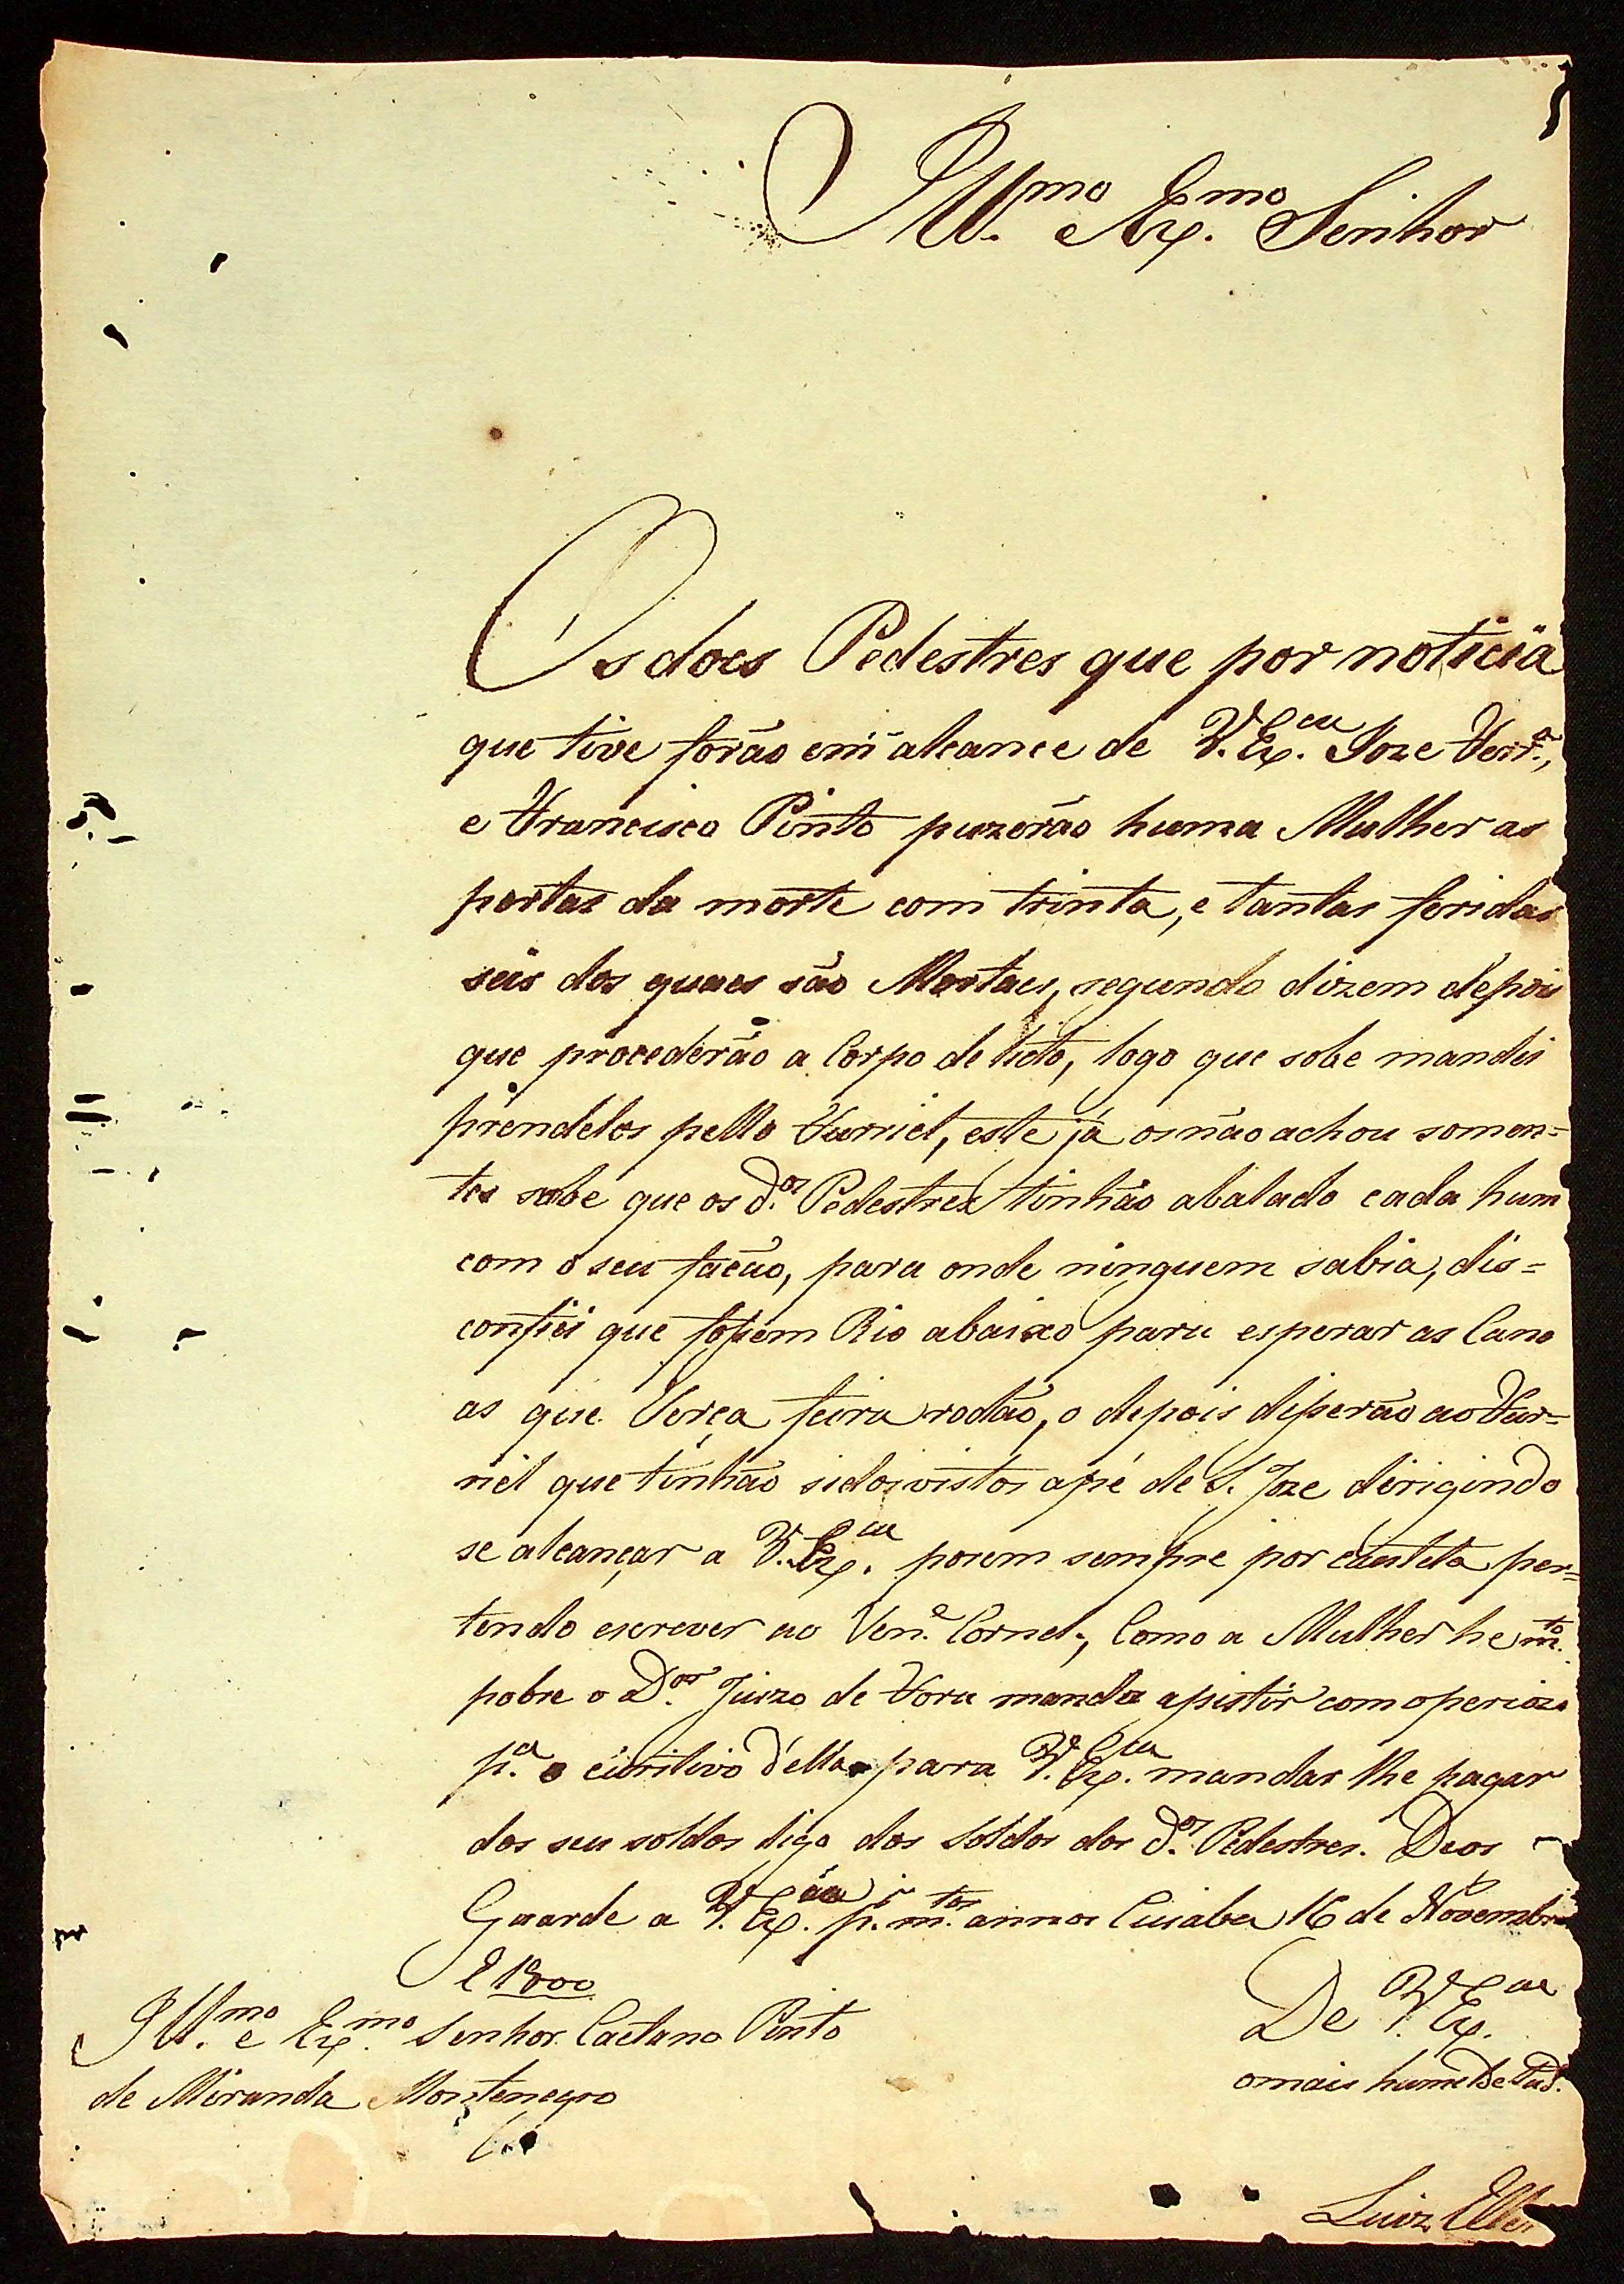 Ill.mo Ex.mo Senhor
Os does Pedestres que por noticia
que tive forão em alcance de V. Ex.cia Joze Ferr.a,
e Francisco Pinto puzerão huma Mulher as
portas da morte com trinta, e tantas feridas
seis dos quaes são Mortaes, segundo dizem depois
que procederão a Corpo de licto, logo que sobe mandei
prendelos pello Furriel, este já os não achou somen=
tes sobe que os d.os Pedestres tinhão abalado cada hum
com o seu facão, para onde ninguem sabia, dis=
confiei que fossem Rio abaixo para esperar as Cano
as que Terça feira rodão, o depois disserão ao Fur=
riel que tinhão sidos vistos a pé de S. Joze dirigindo
se alcançar a V. Ex.cia porem sempre por cautela per=
tendo escrever ao Ten.e Cornel, Como a Mulher he m.to
pobre o D.or Juizo de Fora manda asistir com o perciozo
p.a o curitivo d'ella para V. Ex.cia mandar lhe pagar
dos seu soldos digo dos Soldos dos d.os Pedestres. Deos
Guarde a V. Ex.cia p.r m.tos annos Cuiaba 16 de Novembro
de 1800
Ill.mo e Ex.mo Senhor Caetano Pinto
de Miranda Montenegro
De V. Ex.cia
o mais humilde Sud.
Luiz